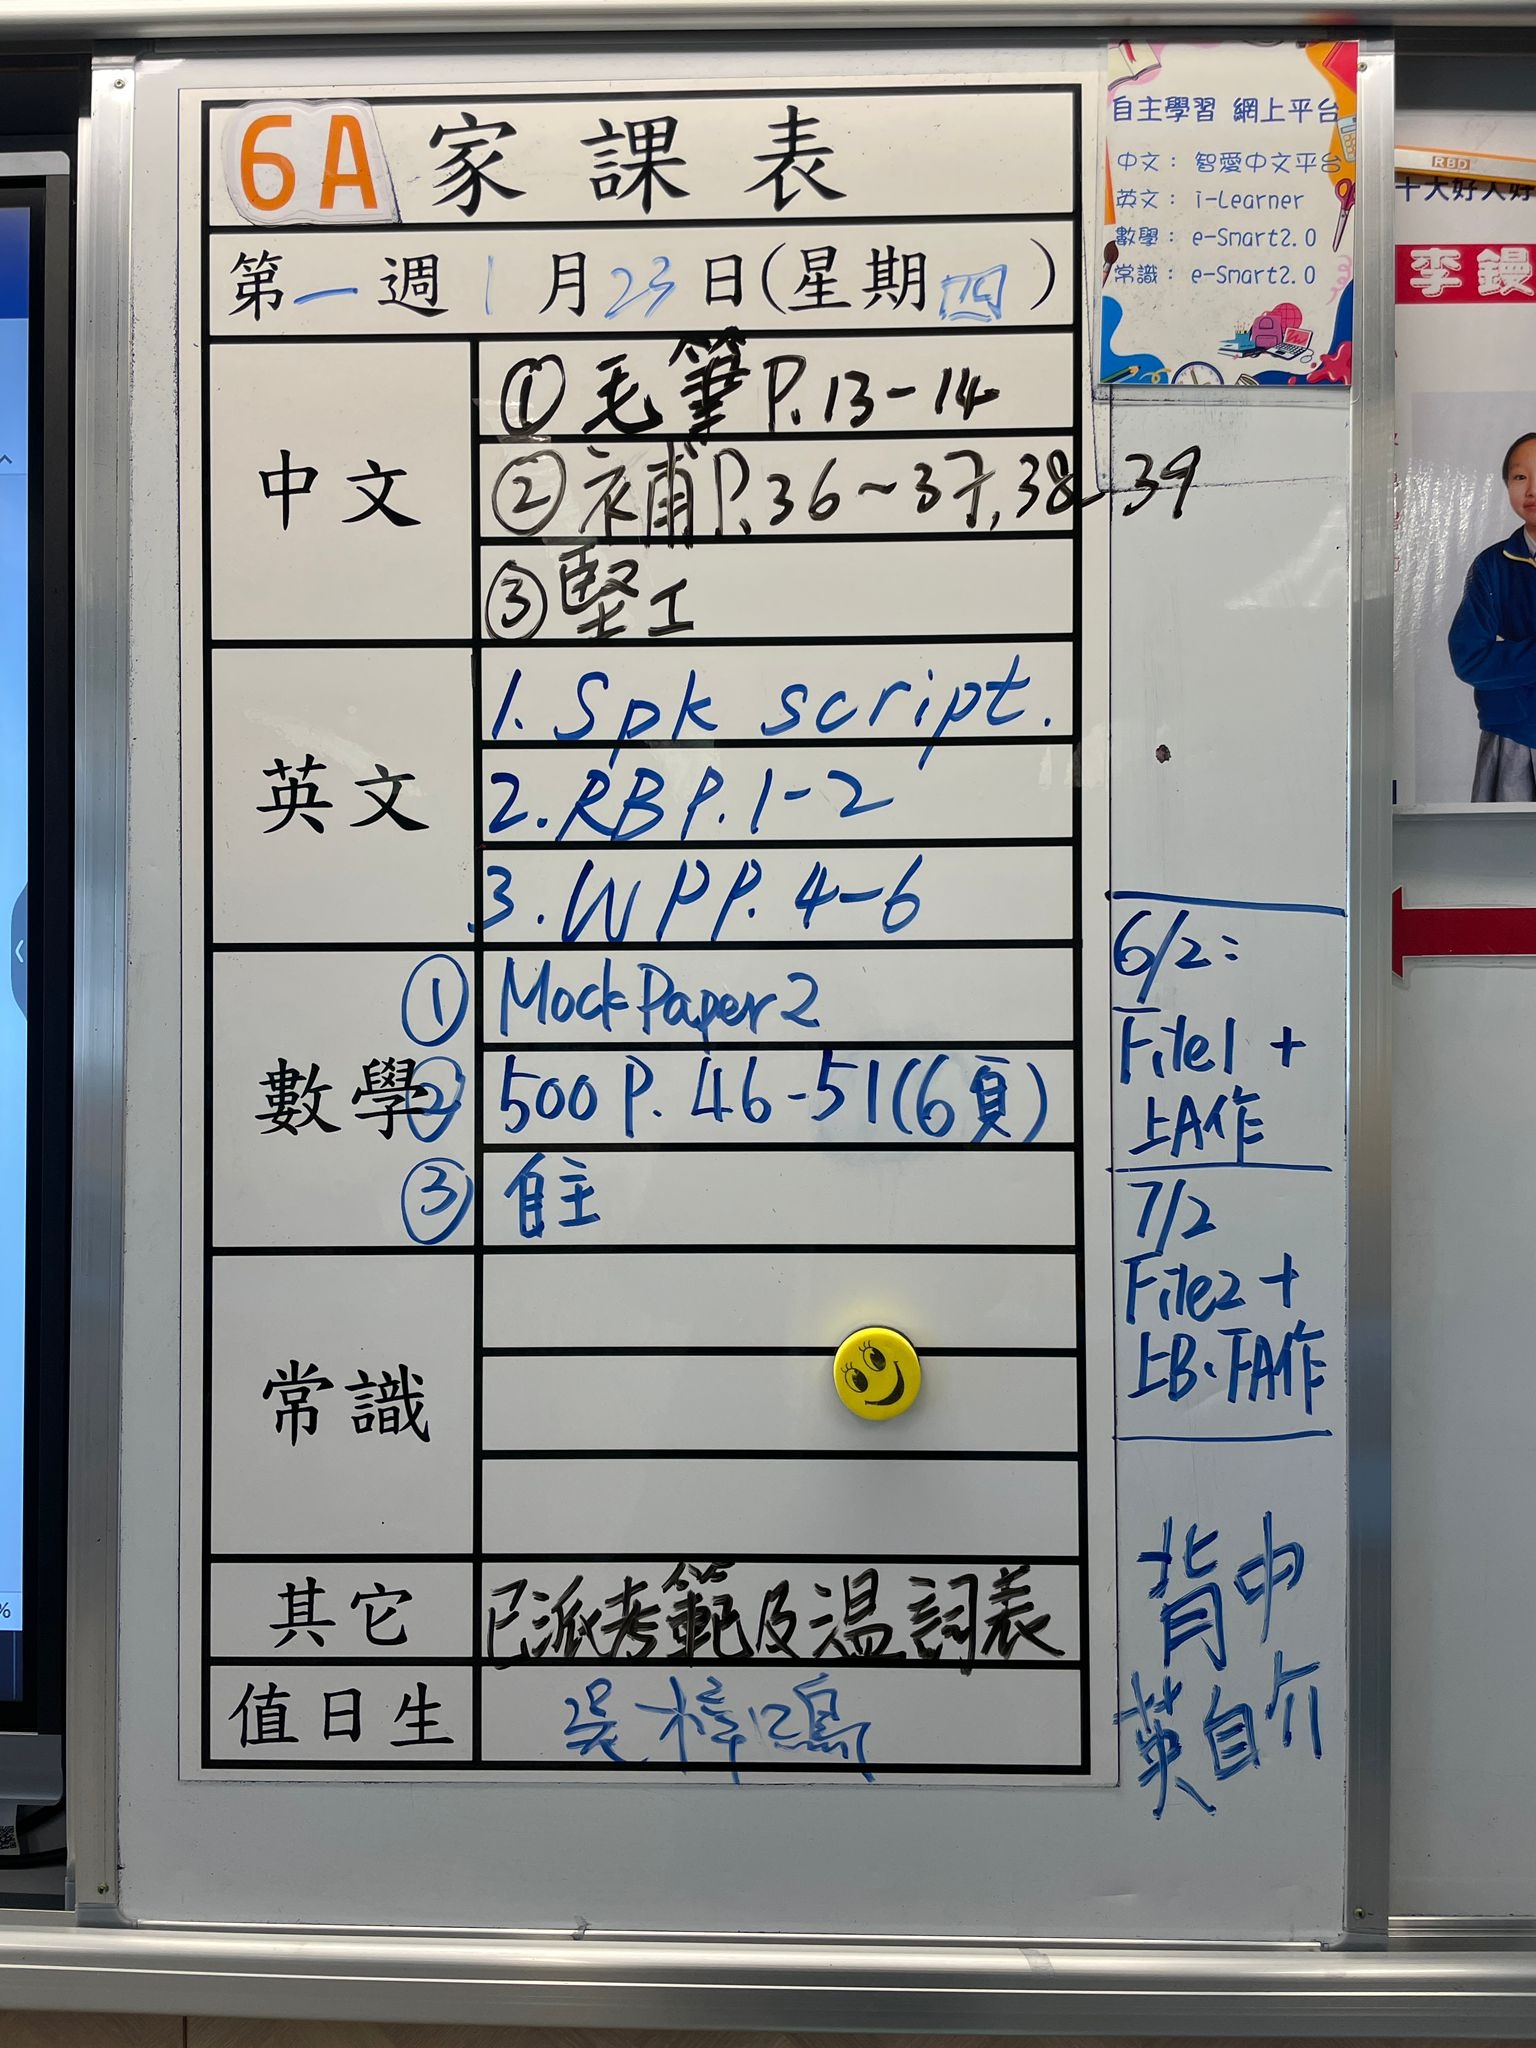 6A 家課表
第一週 1月23日(星期四)
中文
①毛筆P.13-14
②補P.36~37,38-39
③堅工
英文
1. Spk script.
2. RB P.1-2
3. WP P. 4-6
數學
① Mock Paper 2
② 500 P. 46-51(6頁)
③ 自主
常識
其它
已派考範及溫詞表
值日生
吳樟鳴
自主學習 網上平台
中文： 智愛中文平台
英文： i-Learner
數學： e-Smart2.0
常識： e-Smart2.0
6/2:
File1 +
上A作
7/2
File2 +
上B、下A作
背中
英自介
RBD
十大好人好
李鏝
%